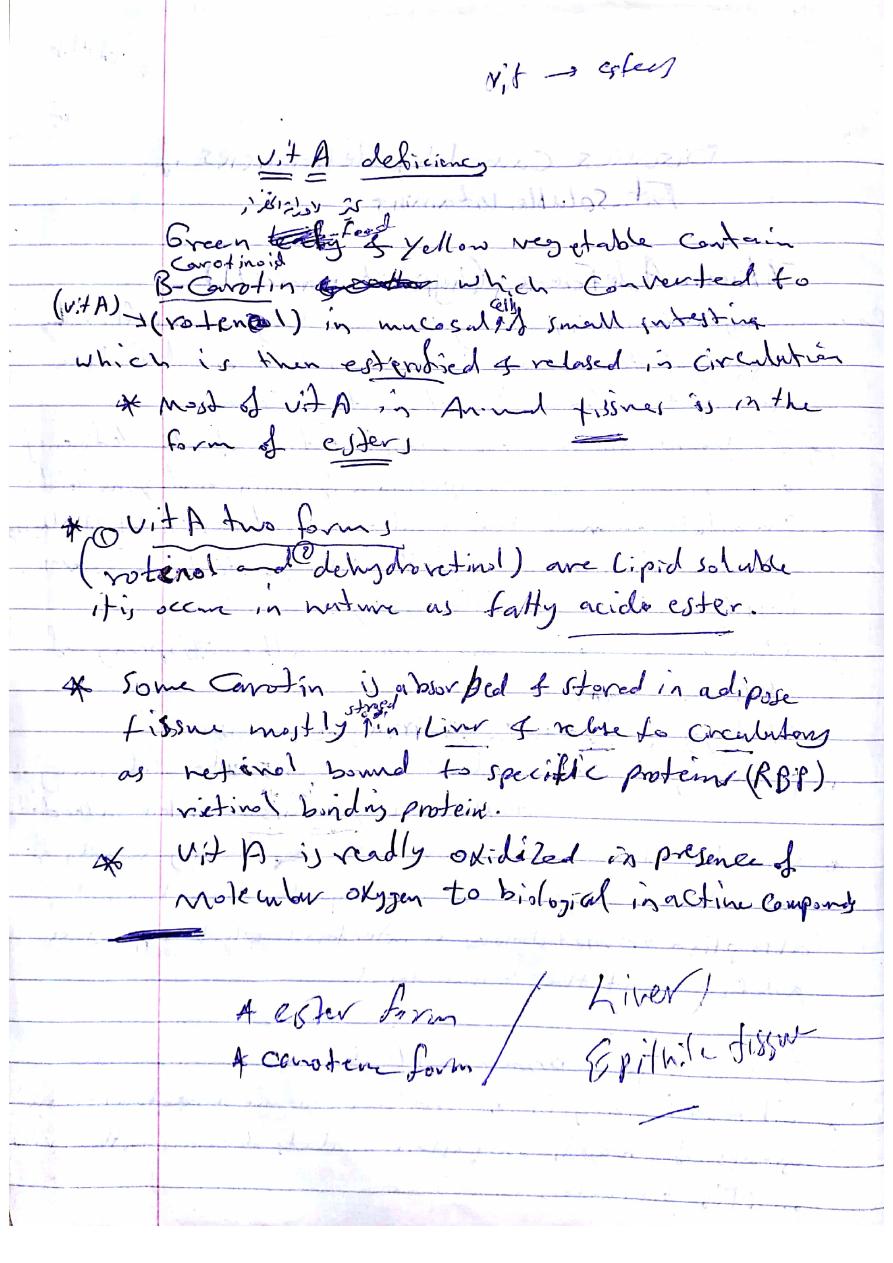 vit → esters
vit A deficiency
Green Food & yellow vegetable contain
Carotinoid
B-Carotin which converted to
(vit A) → (rotenol) in mucosal cells of small intestine
which is then esterified & relased in circulation
* Most of vit A in Animal tissues is in the
form of esters
* vit A two forms
(① rotenol and ② dehydroretinol) are lipid soluble
it is occure in nature as fatty acids ester.
* Some Carotin is absorbed & stored in adipose
tissue mostly stored in Liver & relase to circulatory
as retinol bound to specific proteins (RBP)
rietinol binding protein.
* vit A is readly oxidized in presence of
molecular oxygen to biological inactive compounds
* ester form / Liver /
* carotene form / Epithile tissue